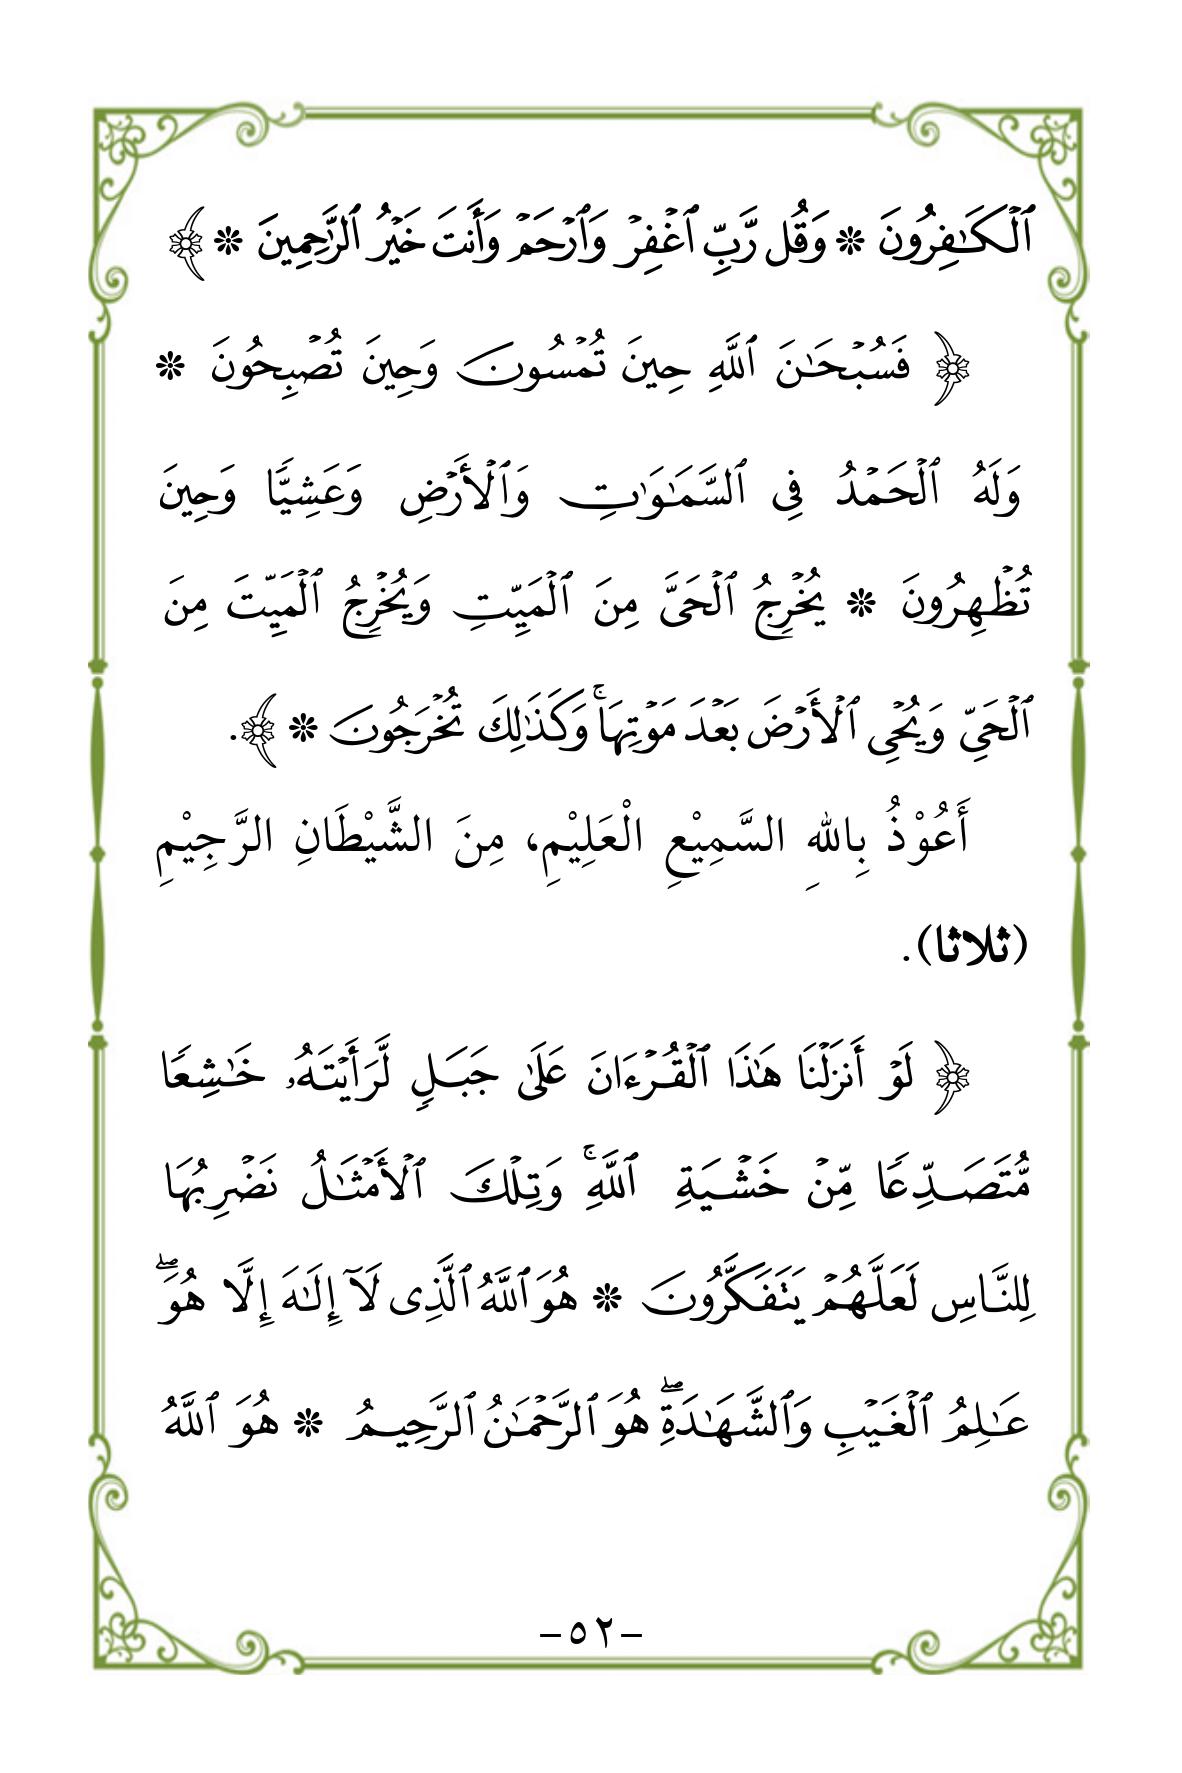 ٱلۡكَٰفِرُونَ ❊ وَقُل رَّبِّ ٱغۡفِرۡ وَٱرۡحَمۡ وَأَنتَ خَيۡرُ ٱلرَّٰحِمِينَ ❊ ﴾
﴿ فَسُبۡحَٰنَ ٱللَّهِ حِينَ تُمۡسُونَ وَحِينَ تُصۡبِحُونَ ❊
وَلَهُ ٱلۡحَمۡدُ فِى ٱلسَّمَٰوَٰتِ وَٱلۡأَرۡضِ وَعَشِيًّا وَحِينَ
تُظۡهِرُونَ ❊ يُخۡرِجُ ٱلۡحَىَّ مِنَ ٱلۡمَيِّتِ وَيُخۡرِجُ ٱلۡمَيِّتَ مِنَ
ٱلۡحَىِّ وَيُحۡىِ ٱلۡأَرۡضَ بَعۡدَ مَوۡتِهَاۚ وَكَذَٰلِكَ تُخۡرَجُونَ ❊ ﴾.
أَعُوْذُ بِاللهِ السَّمِيْعِ الْعَلِيْمِ، مِنَ الشَّيْطَانِ الرَّجِيْمِ
(ثلاثا).
﴿ لَوۡ أَنزَلۡنَا هَٰذَا ٱلۡقُرۡءَانَ عَلَىٰ جَبَلٍ لَّرَأَيۡتَهُۥ خَٰشِعًا
مُّتَصَدِّعًا مِّنۡ خَشۡيَةِ ٱللَّهِۚ وَتِلۡكَ ٱلۡأَمۡثَٰلُ نَضۡرِبُهَا
لِلنَّاسِ لَعَلَّهُمۡ يَتَفَكَّرُونَ ❊ هُوَ ٱللَّهُ ٱلَّذِى لَآ إِلَٰهَ إِلَّا هُوَۖ
عَٰلِمُ ٱلۡغَيۡبِ وَٱلشَّهَٰدَةِۖ هُوَ ٱلرَّحۡمَٰنُ ٱلرَّحِيمُ ❊ هُوَ ٱللَّهُ
-٥٢-